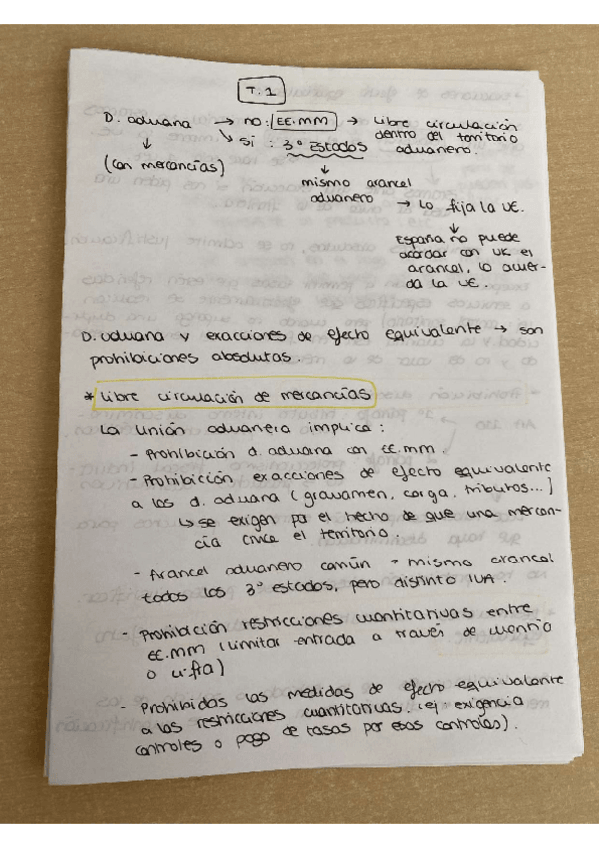 T.1
D. aduana → no: EE.MM → Libre circulación
dentro del territorio
aduanero.
↳ sí : 3º Estados
↓
(con mercancías)
↓
mismo arancel
aduanero → Lo fija la UE.
↓
España no puede
acordar con UK el
arancel, lo acuer-
da la UE.
D. aduana y exacciones de efecto equivalente → son
prohibiciones absolutas.
* Libre circulación de mercancías
La Unión aduanera implica:
- Prohibición d. aduana con EE.MM.
- Prohibición exacciones de efecto equivalente
a los d. aduana (gravamen, carga, tributos...)
↳ se exigen por el hecho de que una mercan-
cía cruce el territorio.
- Arancel aduanero común - mismo arancel
todos los 3º estados, pero distinto IVA.
- Prohibición restricciones cuantitativas entre
EE.MM (limitar entrada a través de cuantía
o cifra)
- Prohibidas las medidas de efecto equivalente
a las restricciones cuantitativas. (ej: exigencia
controles o pago de tasas por esos controles).